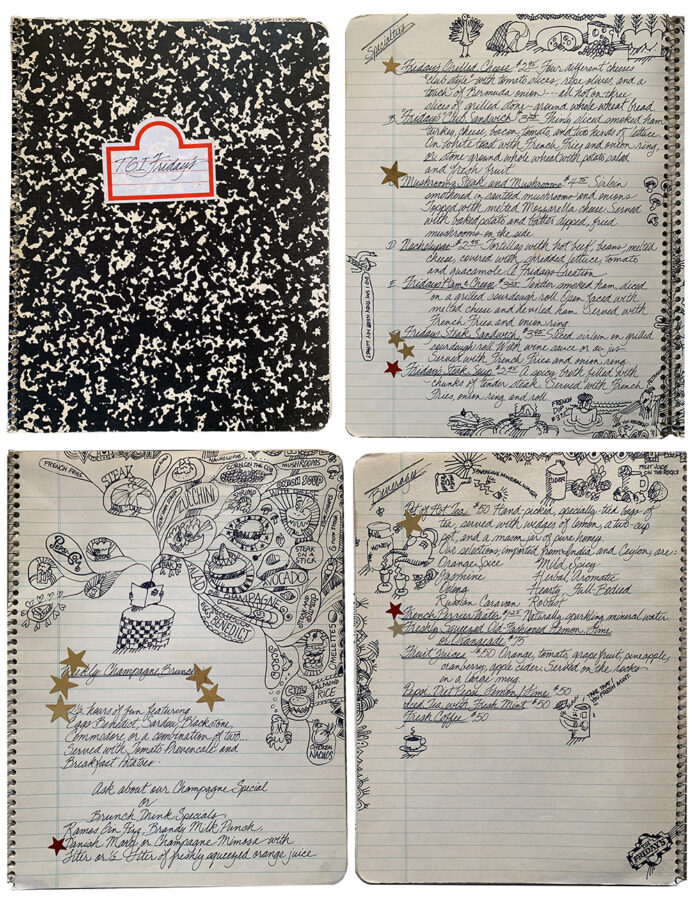 T.G.I. Friday's
Specialties
Friday's Grilled Cheese $2.95 Four different cheeses
"club style" with tomato slices, ripe olives, and a
touch of Bermuda onion --- all hot on three
slices of grilled stone-ground whole wheat bread.
B. Friday's Club Sandwich Thinly sliced smoked ham
turkey, cheese, bacon, tomato, and two kinds of lettuce
On white toast with French Fries and onion ring,
or stone ground whole wheat with potato salad
and fresh fruit.
Mushrooms, Steak and Mushrooms Sirloin
smothered in sautéed mushrooms and onions.
Topped with melted Mozzarella cheese. Served
with baked potato and batter dipped, fried
mushrooms on the side.
D. Nacholupas Tortillas with hot beef, beans, melted
cheese, covered with shredded lettuce, tomato
and guacamole. A Fridays creation
E. Friday's Ham & Cheese Tender smoked ham, sliced
on a grilled sourdough roll. Open faced with
melted cheese and deviled ham. Served with
French Fries and onion ring.
Friday's Steak Sandwich Sliced sirloin on grilled
sourdough roll. With wine sauce or au jus.
Served with French Fries and onion ring
Friday's Steak Soup A spicy broth filled with
chunks of tender steak. Served with French
Fries, onion ring and roll
FRENCH DIP
FRENCH FRIES
STEAK
ZUCCHINI
NACHOLUPAS
CORN ON THE COB
MUSHROOMS
ONION SOUP
STEAK ON A STICK
SALAD
AVOCADO
CHAMPAGNE
EGGS BENEDICT
OMELETTES
SCROD
ALMOND RICE
CHILI
CHICKEN NACHOS
Weekly Champagne Brunch
hours of fun featuring
Eggs Benedict, Sardou, Blackstone,
Commodore, or a combination of two.
Served with Tomato Provencale and
Breakfast Potatoes.
Ask about our Champagne Special
or
Brunch Drink Specials
Ramos Gin Fizz, Brandy Milk Punch,
Danish Mary or Champagne Mimosa with
liter or ½ liter of freshly squeezed orange juice
Beverages
CIDER
FRUIT JUICE ON THE ROCKS
HONEY
Pot of Hot Tea $.50 Hand picked, specially tied bags of
tea, served with wedges of lemon, a two-cup
pot, and a mason jar of pure honey.
Our selections, imported from India and Ceylon, are:
Orange Spice Mild Spicy
Jasmine Herbal Aromatic
Oolong Hearty Full-Bodied
Russian Caravan Robust
French Perrier Water Naturally sparkling mineral water.
Freshly Squeezed Old-Fashioned Lemon, Lime
or Orangeade $.75
Fruit Juices $.50 Orange, tomato, grapefruit, pineapple,
cranberry, apple cider. Served on the rocks
in a large mug.
Pepsi, Diet Pepsi, Lemon/Lime $.50
Iced Tea with Fresh Mint $.50
Fresh Coffee $.50
FRIDAY'S